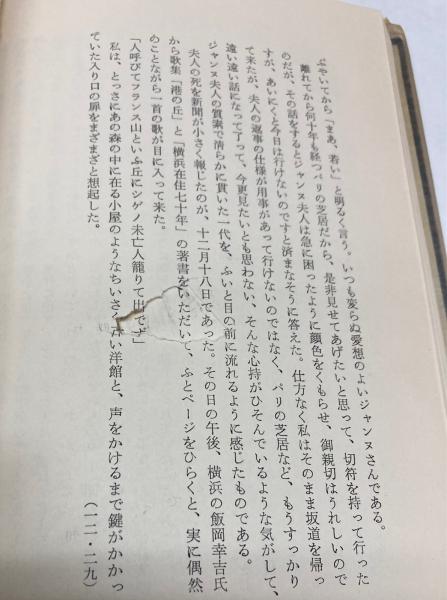 ぶやいてから「まあ、若い」と明るく言う。いつも変らぬ愛想のよいジャンヌさんである。
離れてから何十年も経つパリの芝居だから、是非見せてあげたいと思って、切符を持って行った
のだが、その話をするとジャンヌ夫人は急に困ったように顔色をくもらせ、御親切はうれしいので
すが、あいにくと今日は行けないのですと済まなそうに答えた。仕方なく私はそのまま坂道を帰っ
て来たが、夫人の返事の仕様が用事があって行けないのではなく、パリの芝居など、もうすっかり
遠い遠い話になって了って、今更見たいとも思わない、そんな心持がひそんでいるような気がして、
ジャンヌ夫人の質素で清らかに貫いた一代を、ふいと目の前に流れるように感じたものである。
夫人の死を新聞が小さく報じたのが、十二月十八日であった。その日の午後、横浜の飯岡幸吉氏
から歌集「港の丘」と「横浜在住七十年」の著書をいただいて、ふとページをひらくと、実に偶然
のことながら一首の歌が目に入って来た。
「人呼びてフランス山といふ丘にシゲノ未亡人籠りて出でず」
私は、とっさにあの森の中に在る小屋のようなちいさく い洋館と、声をかけるまで鍵がかかっ
ていた入り口の扉をまざまざと想起した。
（一二・二九）